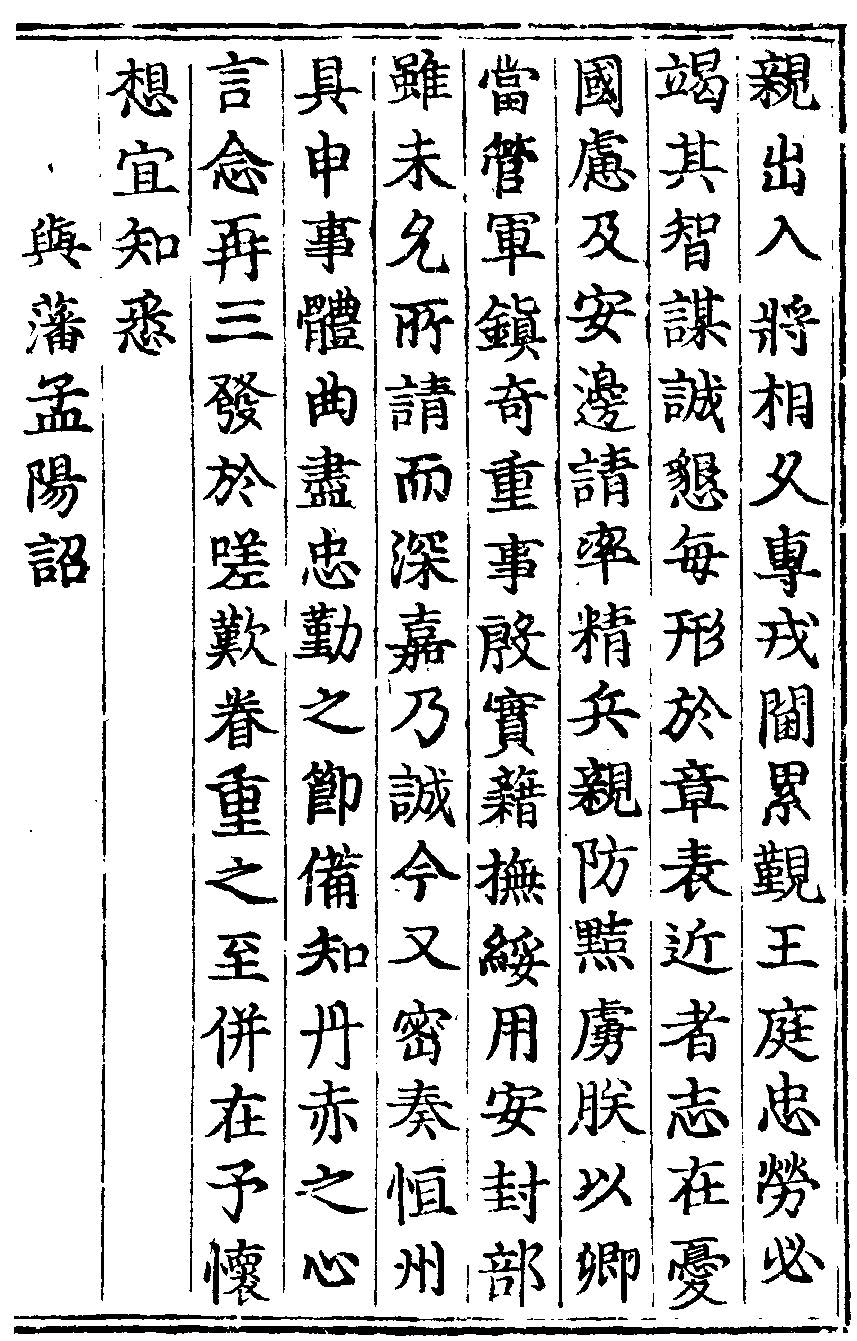 親出入將相久專戎閫累覲王庭忠勞必
竭其智謀誠懇每形於章表近者志在憂
國慮及安邊請率精兵親防黠虜朕以卿
當管軍鎮奇重事殷實藉撫綏用安封部
雖未允所請而深嘉乃誠今又密奏恒州
具申事體曲盡忠勤之節備知丹赤之心
言念再三發於嗟歎眷重之至併在予懷
想宜知悉
與藩孟陽詔